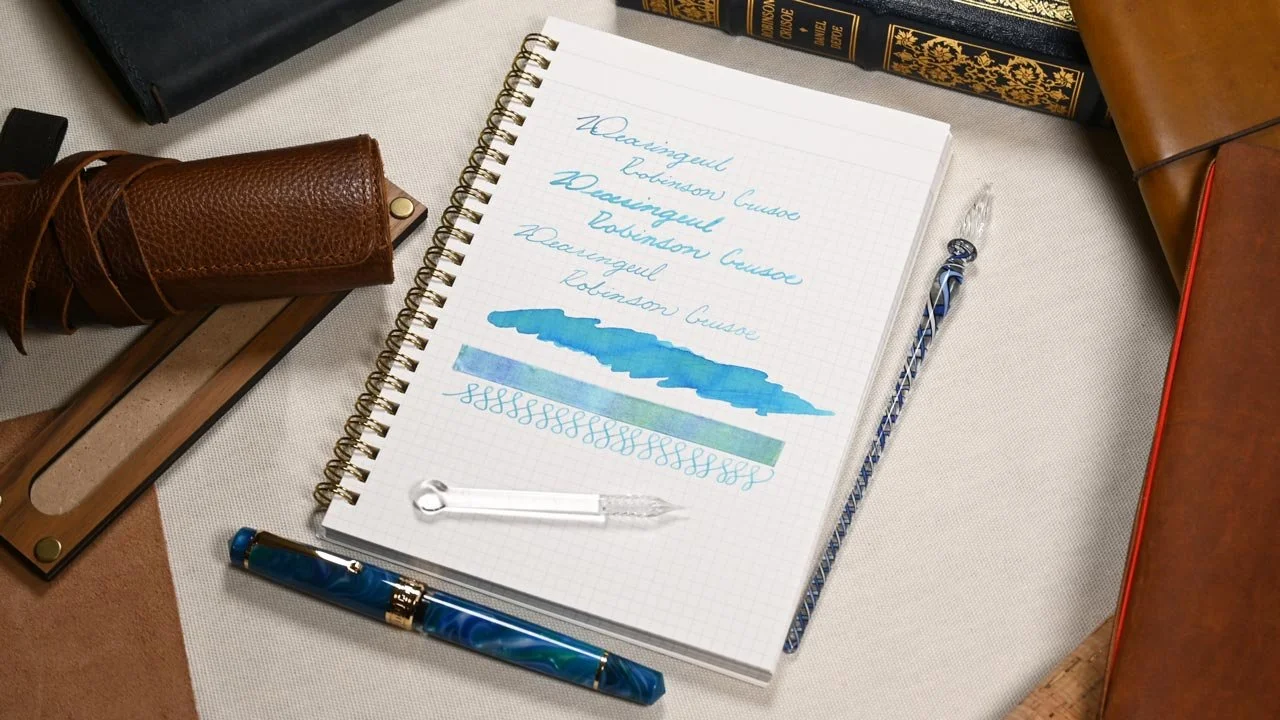 ROBINSON
CRUSOE
DANIEL
DEFOE
Wearingeul
Robinson Crusoe
Wearingeul
Robinson Crusoe
Wearingeul
Robinson Crusoe